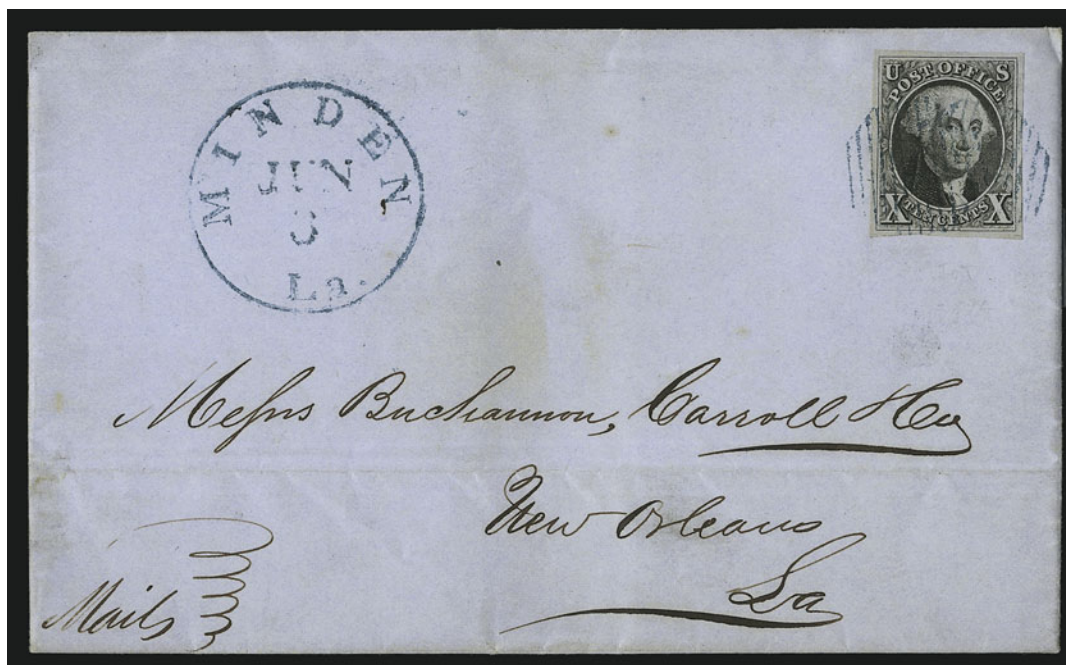 MINDEN
JUN
3
La.
U S
POST OFFICE
X TEN CENTS X
Messrs Buchannon, Carroll & Co
New Orleans
La
Mails